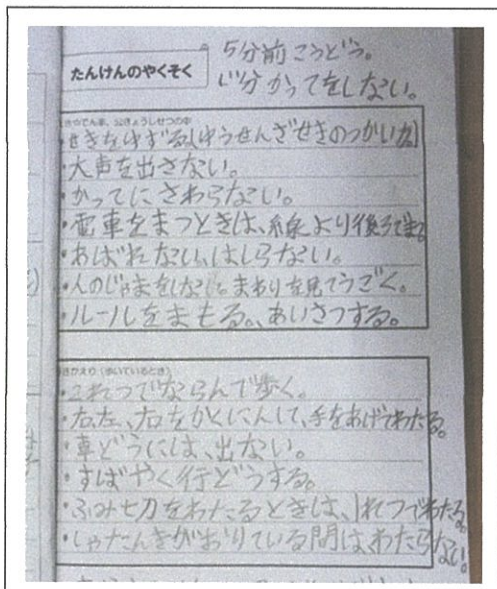 たんけんのやくそく
5分前こうどう。
じ分かってをしない。
でんま、公きょうしせつの中
・せきをゆずる(ゆうせんざせきのつかい方)
・大声を出さない。
・かってにさわらない。
・電車をまつときは、線より後ろでまつ
・あばれない、はしらない。
・人のじゃまをしない。まわりを見てうごく。
・ルールをまもる。、あいさつする。
きかえり(歩いているとき)
・2れつでならんで歩く。
・右、左、右をかくにんして、手をあげてわたる。
・車どうには、出ない。
・すばやく行どうする。
・ふみ切りをわたるときは、1れつでわたる。
・しゃだんきがおりている間は、わたらない。